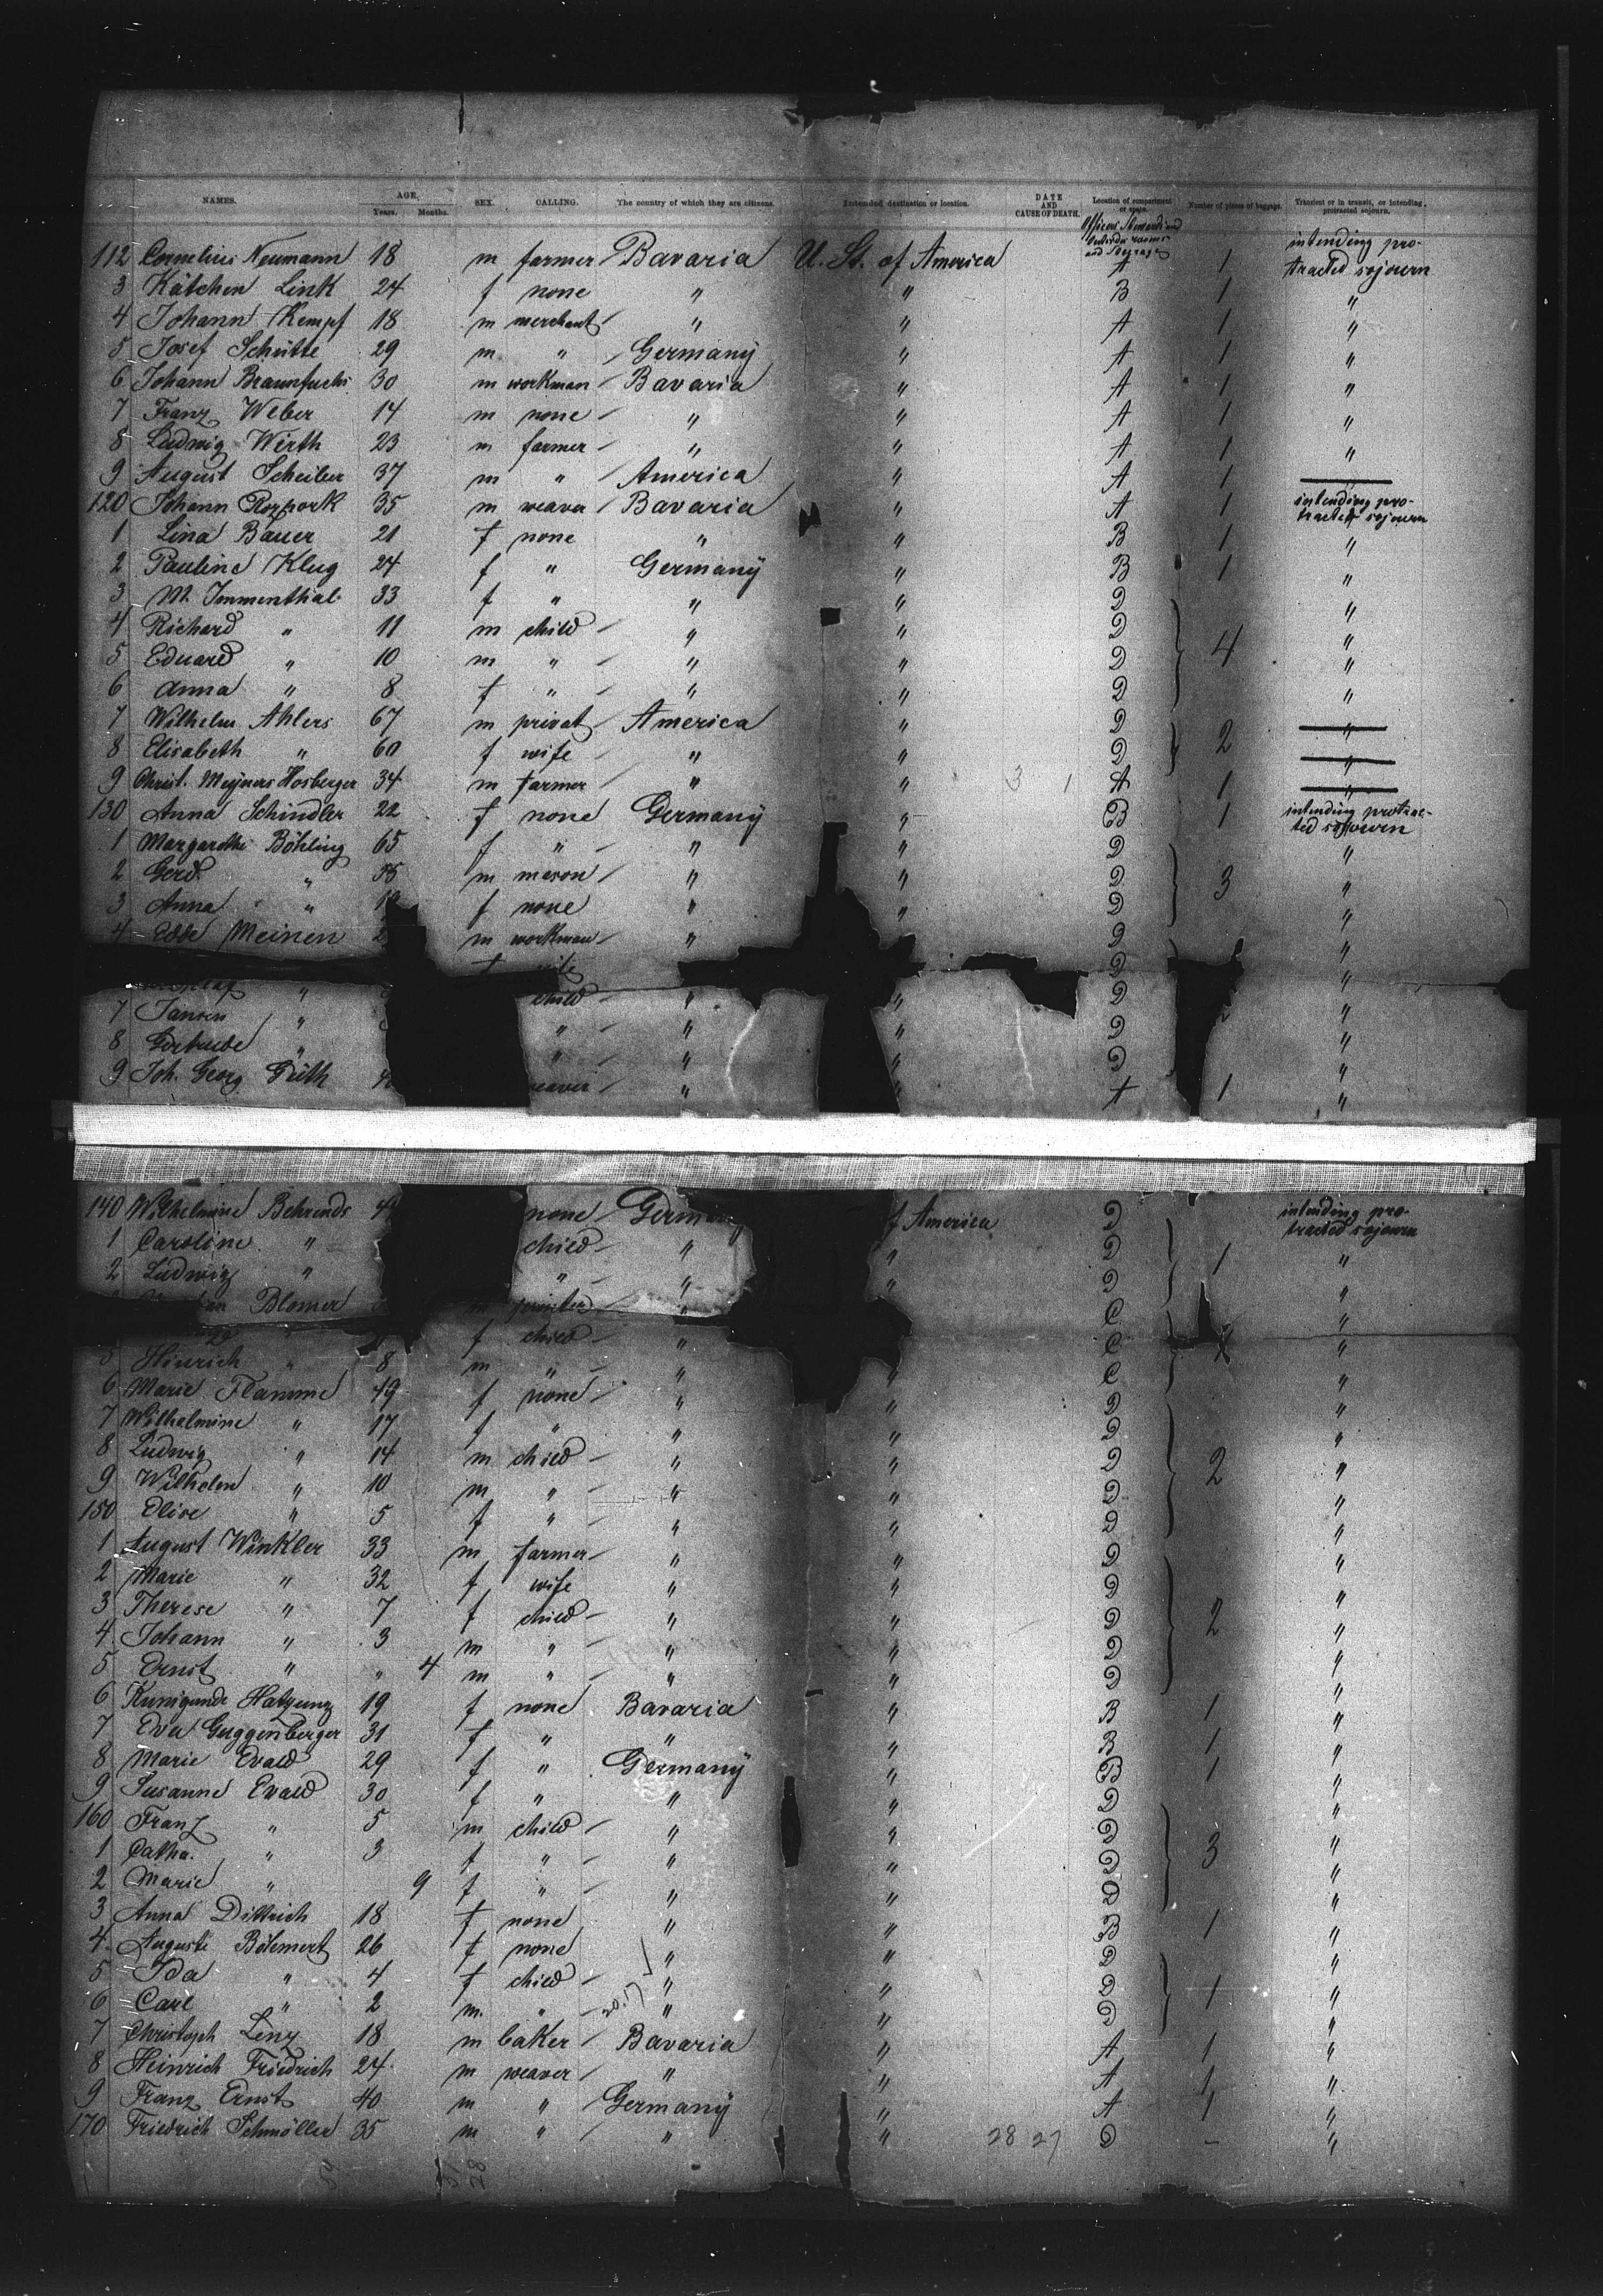 NAMES. AGE, Years. Months. SEX. CALLING. The country of which they are citizens. Intended destination or location. DATE AND CAUSE OF DEATH. Location of compartment or space. Number of pieces of baggage. Transient or in transit, or intending protracted sojourn.
and Steerage
112 Cornelius Neumann 18 m farmer Bavaria U. St. of America A 1 intending pro-
tracted sojourn
3 Kätchen Link 24 f none " " B 1 "
4 Johann Kempf 18 m merchant " " A 1 "
5 Josef Schütte 29 m " Germany " A 1 "
6 Johann Braunfuchs 30 m workman Bavaria " A 1 "
7 Franz Weber 14 m none " " A 1 "
8 Ludwig Wirth 23 m farmer " " A 1 "
9 August Scheiber 37 m " America " A 1 —
120 Johann 35 m weaver Bavaria " A 1 intending pro-
tracted sojourn
1 Lina Bauer 21 f none " " B 1 "
2 Pauline Klug 24 f " Germany " B 1 "
3 M. Immenthal 33 f " " " D "
4 Richard " 11 m child " " D 4 "
5 Eduard " 10 m " " " D "
6 Anna " 8 f " " " D "
7 Wilhelm Ahlers 67 m privat America " D "
8 Elisabeth " 60 f wife " " D 2 "
9 Christ. Meyners Hosberger 34 m farmer " " 3 1 A 1 "
130 Anna Schindler 22 f none Germany " B 1 intending protrac-
ted sojourn
1 Margarethe Böhling 65 f " " " D "
2 Gerd. " 35 m mason " " D 3 "
3 Anna " f none " " D "
4 Edde Meinen m workman " D "
wife D "
" child " " D "
7 Jansen " " " " D "
8 Gertrude " " " " D "
9 Joh. Georg Güth weaver " A 1 "
140 Wilhelmine Behrends none German America D intending pro-
tracted sojourn
1 Caroline " child " " D 1 "
2 Ludwig " " " " D "
Blomer m " C "
" f child " C "
5 Hinrich " 8 m " " " C "
6 Marie Flamme 49 f none " " D "
7 Wilhelmine " 17 f " " " D "
8 Ludwig " 14 m child " " D 2 "
9 Wilhelm " 10 m " " " D "
150 Elise " 5 f " " " D "
1 August Winkler 33 m farmer " " D "
2 Marie " 32 f wife " " D "
3 Therese " 7 f child " " D 2 "
4 Johann " 3 m " " " D "
5 Ernst " " 4 m " " " D "
6 Kunigunde 19 f none Bavaria " B 1 "
7 Eva Guggenberger 31 f " " " B 1 "
8 Marie Evald 29 f " Germany " B 1 "
9 Susanne Evald 30 f " " " D "
160 Franz " 5 m child " " D "
1 Catha. " 3 f " " " D 3 "
2 Marie " 9 f " " " D "
3 Anna Dittrich 18 f none " " B 1 "
4 Auguste Böhmert 26 f none " " D "
5 Ida " 4 f child " " D "
6 Carl " 2 m " " " D 1 "
7 Christoph Lenz 18 m baker Bavaria " A 1 "
8 Heinrich Friedrich 24 m weaver " " A 1 "
9 Franz Ernst 40 m " Germany " A 1 "
170 Friedrich Schmöller 35 m " " " 28 27 D - "
31 28